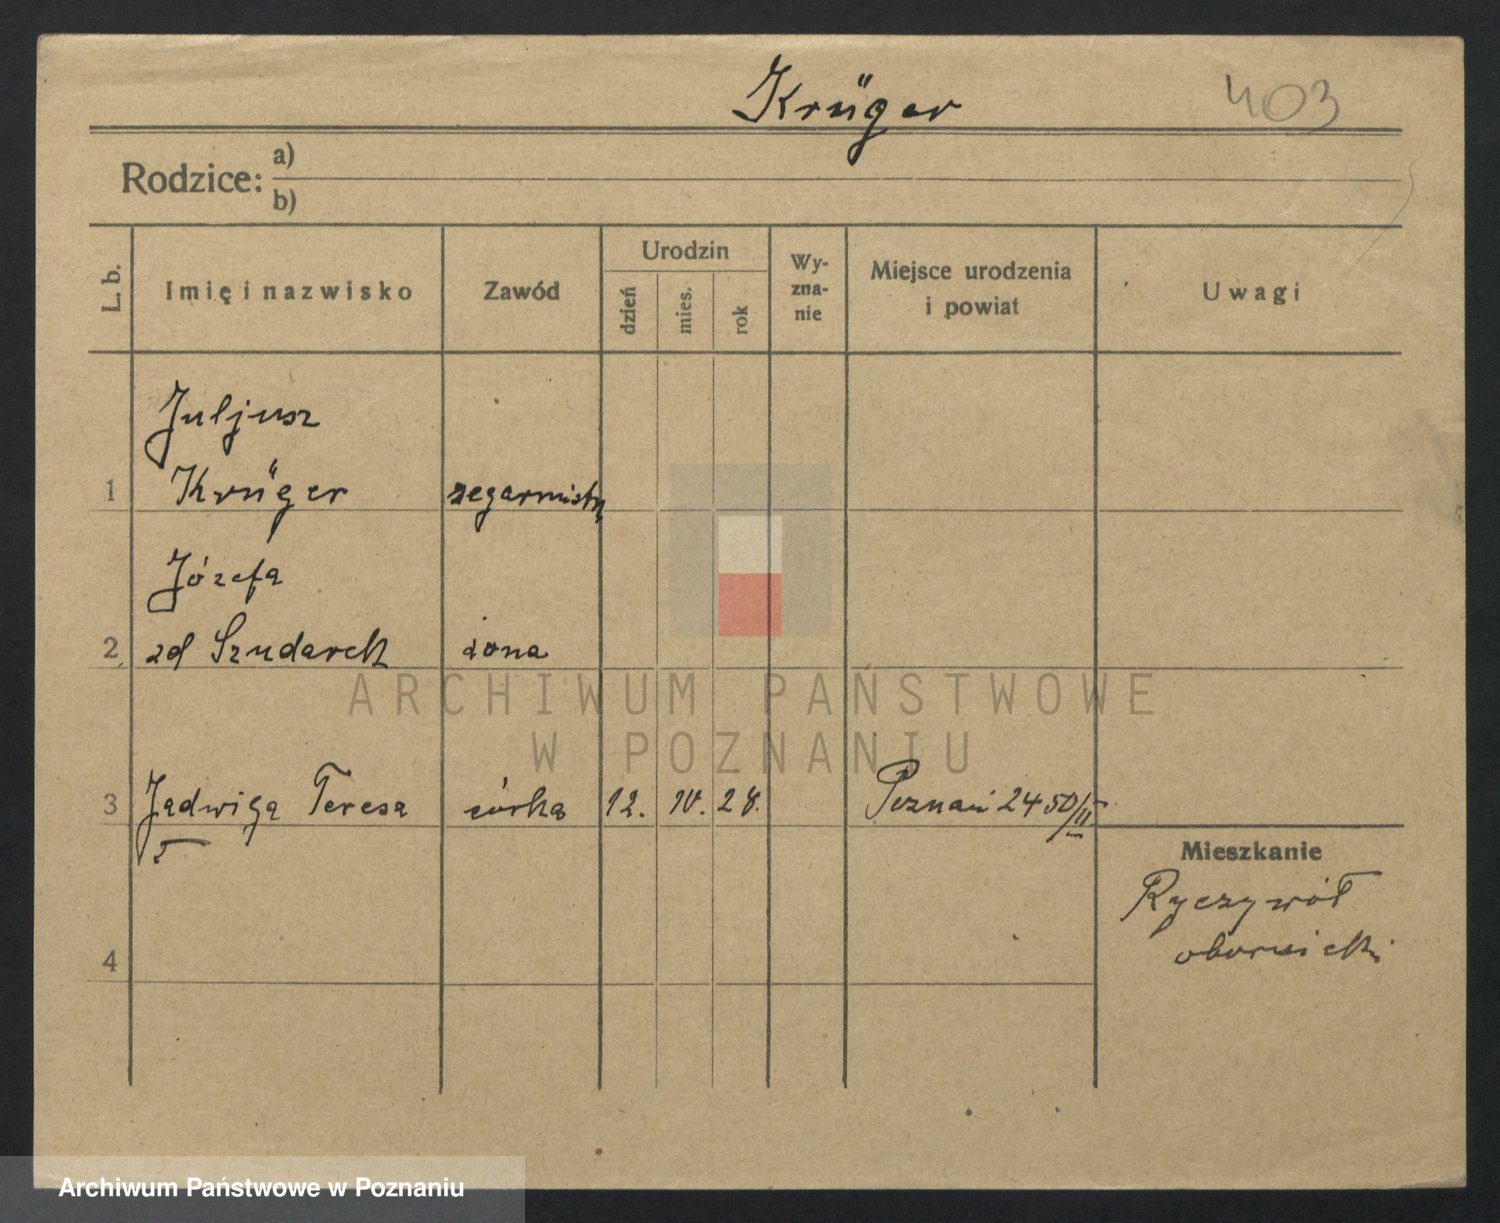 Krüger
403
Rodzice:
a)
b)
L. b.
Imię i nazwisko
Zawód
Urodzin
dzień
mies.
rok
Wy-
zna-
nie
Miejsce urodzenia
i powiat
Uwagi
Juljusz
1 Krüger zegarmistrz
Józefa
2 zd Szudarek żona
3 Jadwiga Teresa córka 12. IV. 28. Poznań 2450/II
Mieszkanie
Ryczywół
obornicki
4
ARCHIWUM PAŃSTWOWE
W POZNANIU
Archiwum Państwowe w Poznaniu